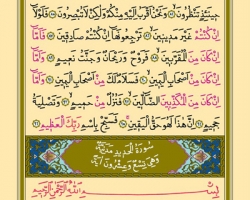 حِينَئِذٍ تَنظُرُونَ ۝ وَنَحْنُ أَقْرَبُ إِلَيْهِ مِنكُمْ وَلَٰكِن لَّا تُبْصِرُونَ ۝ فَلَوْلَا
إِن كُنتُمْ غَيْرَ مَدِينِينَ ۝ تَرْجِعُونَهَا إِن كُنتُمْ صَادِقِينَ ۝ فَأَمَّا
إِن كَانَ مِنَ الْمُقَرَّبِينَ ۝ فَرَوْحٌ وَرَيْحَانٌ وَجَنَّتُ نَعِيمٍ ۝ وَأَمَّا
إِن كَانَ مِنْ أَصْحَابِ الْيَمِينِ ۝ فَسَلَامٌ لَّكَ مِنْ أَصْحَابِ الْيَمِينِ ۝ وَأَمَّا
إِن كَانَ مِنَ الْمُكَذِّبِينَ الضَّالِّينَ ۝ فَنُزُلٌ مِّنْ حَمِيمٍ ۝ وَتَصْلِيَةُ
جَحِيمٍ ۝ إِنَّ هَٰذَا لَهُوَ حَقُّ الْيَقِينِ ۝ فَسَبِّحْ بِاسْمِ رَبِّكَ الْعَظِيمِ ۝
سُورَةُ الْحَدِيدِ مَدَنِيَّةٌ
وَهِيَ تِسْعٌ وَعِشْرُونَ آيَةً
بِسْمِ اللَّهِ الرَّحْمَٰنِ الرَّحِيمِ